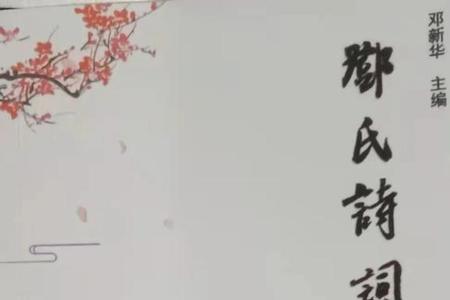 邓新华 主编
鄧氏詩詞